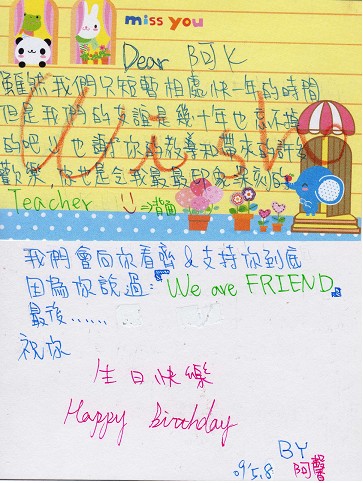 miss you
Dear 阿K
雖然我們只短暫相處快一年的時間
但是我們的友誼是幾十年也忘不掉
的吧!! 也謝謝你的教導和帶來的許多
歡樂,你也是令我最最印象深刻的
Teacher
⇒背面
我們會向你看齊&支持你到底
因為你說過:"We are FRIEND"
最後......
祝你
生日快樂
Happy birthday
BY
阿馨
09'5.8